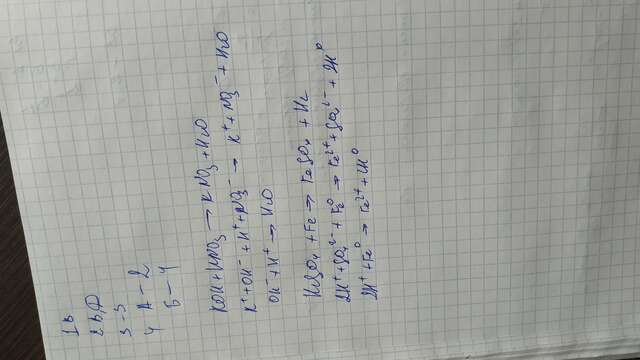 1 в
2 в, д
3 - 3
4 А - 2
Б - 4
KOH + HNO₃ → KNO₃ + H₂O
K⁺ + OH⁻ + H⁺ + NO₃⁻ → K⁺ + NO₃⁻ + H₂O
OH⁻ + H⁺ → H₂O
H₂SO₄ + Fe → FeSO₄ + H₂
2H⁺ + SO₄²⁻ + Fe⁰ → Fe²⁺ + SO₄²⁻ + 2H⁰
2H⁺ + Fe⁰ → Fe²⁺ + 2H⁰